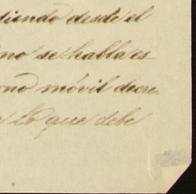 diendo desde el
no se habla es
ono móvil decre
a lo que debe